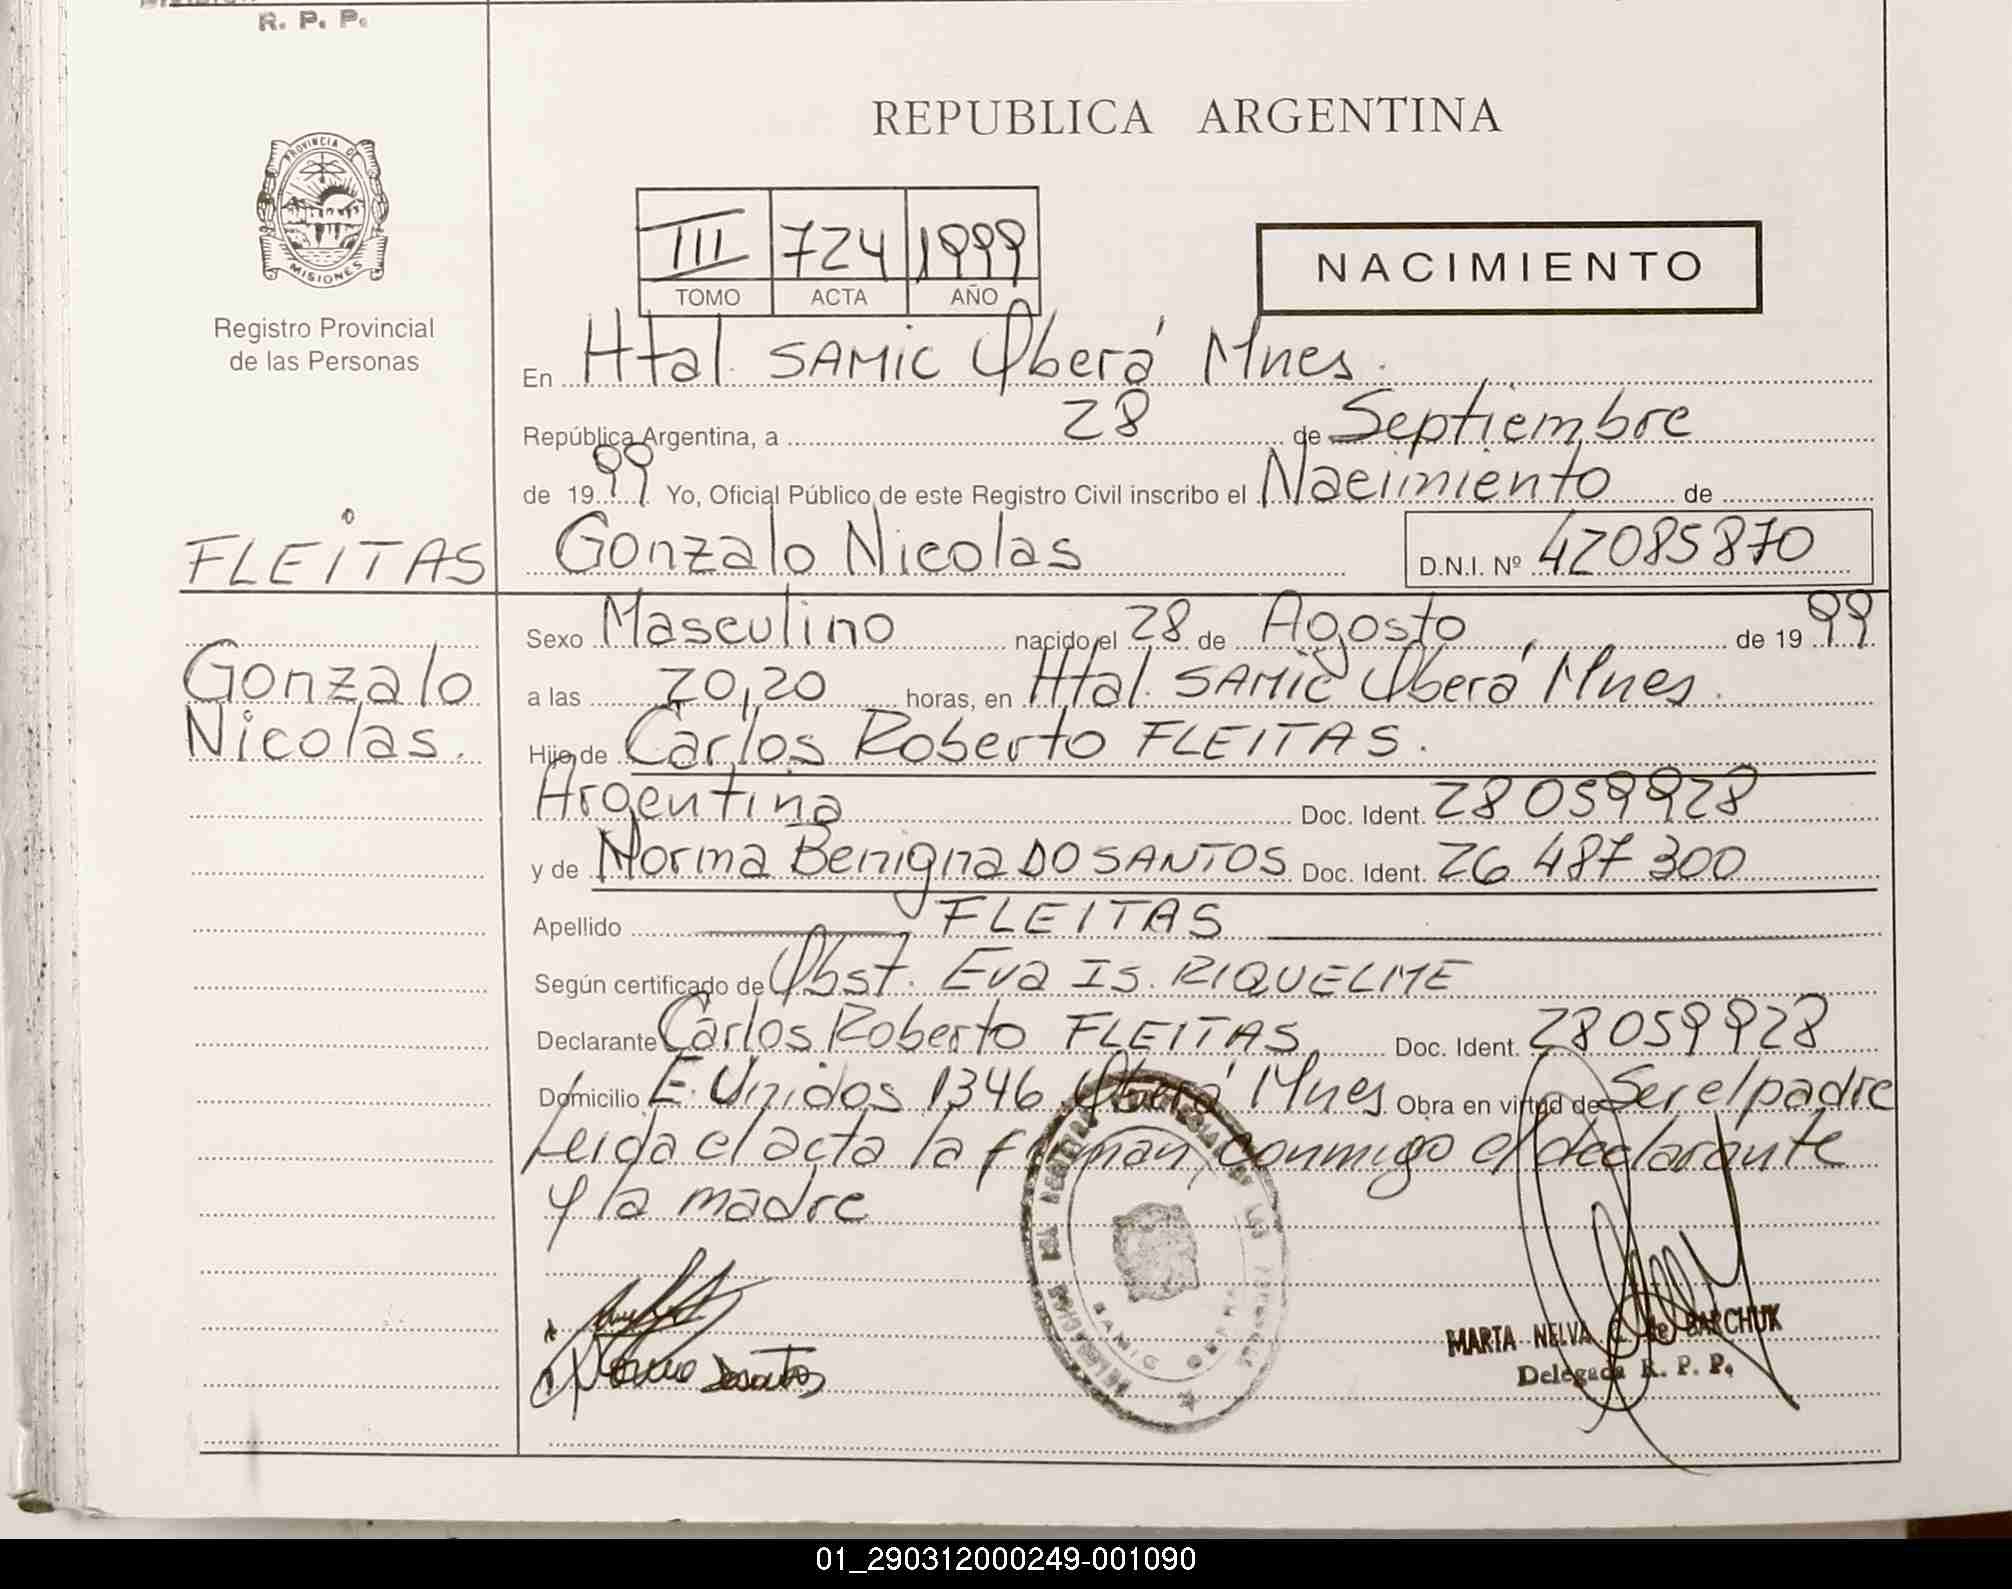 R. P. P.
PROVINCIA DE
MISIONES
Registro Provincial
de las Personas
FLEITAS
Gonzalo
Nicolas.
REPUBLICA ARGENTINA
III 724 1999
TOMO ACTA AÑO
NACIMIENTO
En Htal. SAMIC Oberá Mnes.
República Argentina, a 28 de Septiembre
de 1999 Yo, Oficial Público de este Registro Civil inscribo el Nacimiento de
Gonzalo Nicolas D.N.I. Nº 42085870
Sexo Masculino nacido el 28 de Agosto de 1999
a las 20,20 horas, en Htal. SAMIC Oberá Mnes.
Hijo de Carlos Roberto FLEITAS.
Argentina Doc. Ident. 28059928
y de Norma Benigna DO SANTOS Doc. Ident. 26 487 300
Apellido FLEITAS
Según certificado de Obst. Eva Is. RIQUELME
Declarante Carlos Roberto FLEITAS Doc. Ident. 28059928
Domicilio E. Unidos 1346 Oberá Mnes Obra en virtud de Ser el padre
Leida el acta la firman conmigo el declarante
y la madre
SAMIC OBERA
MARTA NELVA C. de BARCHUK
Delegada R. P. P.
01_290312000249-001090